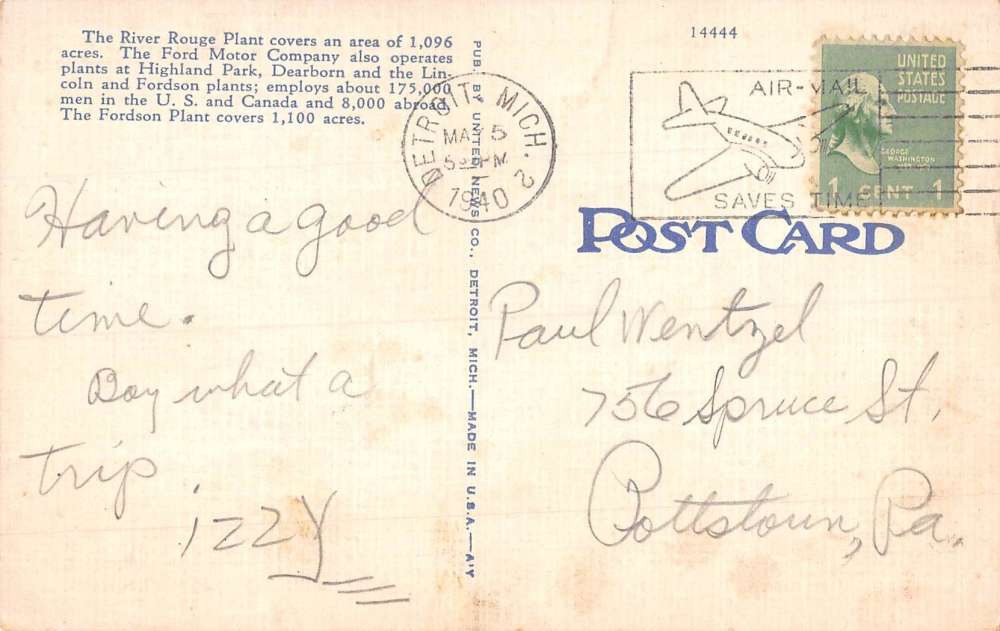 The River Rouge Plant covers an area of 1,096
acres. The Ford Motor Company also operates
plants at Highland Park, Dearborn and the Lin-
coln and Fordson plants; employs about 175,000
men in the U. S. and Canada and 8,000 abroad.
The Fordson Plant covers 1,100 acres.
Having a good
time.
Boy what a
trip.
izzy
PUB. BY UNITED NEWS CO., DETROIT, MICH.—MADE IN U.S.A.—A'Y
DETROIT, MICH. 2
5
PM
1940
14444
AIR-MAIL
SAVES TIME
UNITED
STATES
POSTAGE
GEORGE
WASHINGTON
1 CENT 1
POST CARD
Paul Wentzel
756 Spruce St.
Pottstown, Pa.